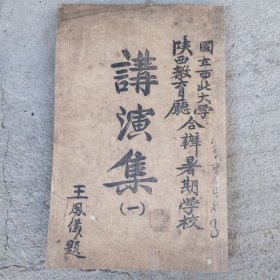 國立西北大學
陝西教育廳
合辦暑期學校
講演集
(一)
王鳳儀題